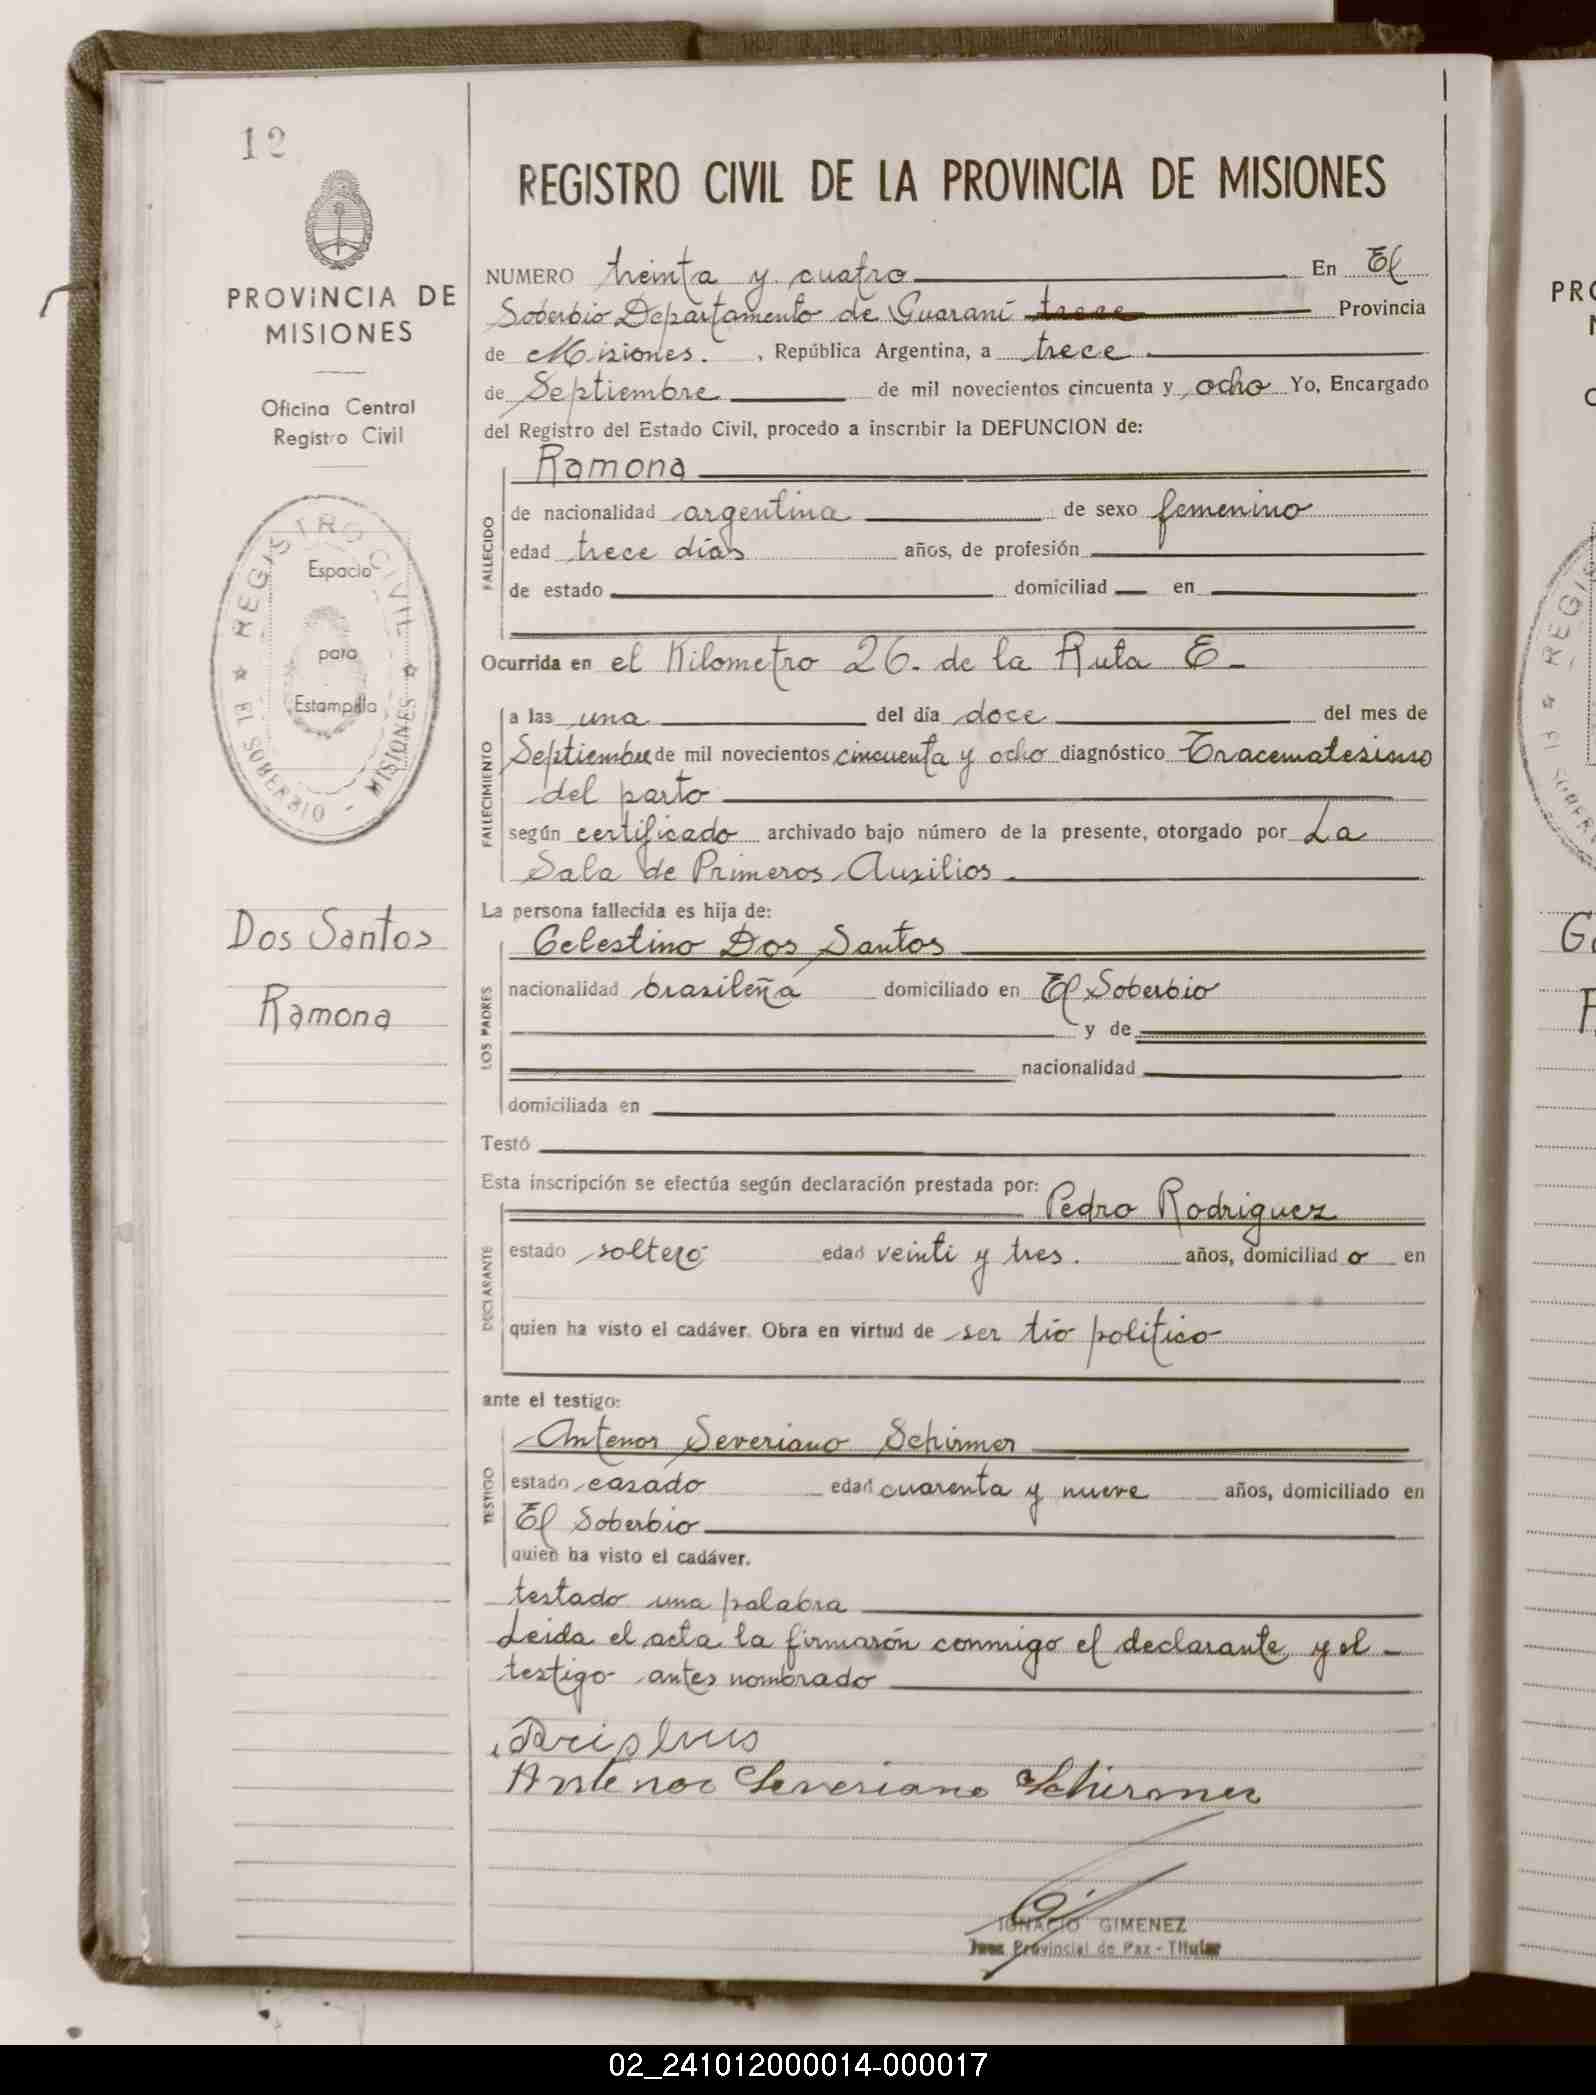 12
PROVINCIA DE
MISIONES
Oficina Central
Registro Civil
REGISTRO CIVIL
Espacio
para
Estampilla
EL SOBERBIO - MISIONES
Dos Santos
Ramona
REGISTRO CIVIL DE LA PROVINCIA DE MISIONES
NUMERO treinta y cuatro En El
Soberbio Departamento de Guaraní trece Provincia
de Misiones. , República Argentina, a trece
de Septiembre de mil novecientos cincuenta y ocho Yo, Encargado
del Registro del Estado Civil, procedo a inscribir la DEFUNCION de:
Ramona
FALLECIDO
de nacionalidad argentina de sexo femenino
edad trece días años, de profesión
de estado domiciliad en
Ocurrida en el Kilometro 26. de la Ruta E-
FALLECIMIENTO
a las una del día doce del mes de
Septiembre de mil novecientos cincuenta y ocho diagnóstico Tracematesimo
del parto
según certificado archivado bajo número de la presente, otorgado por La
Sala de Primeros Auxilios.
La persona fallecida es hija de:
Celestino Dos Santos
LOS PADRES
nacionalidad brasileña domiciliado en El Soberbio
y de
nacionalidad
domiciliada en
Testó
Esta inscripción se efectúa según declaración prestada por:
Pedro Rodriguez
DECLARANTE
estado soltero edad veinti y tres. años, domiciliad o en
quien ha visto el cadáver. Obra en virtud de ser tío politico
ante el testigo:
Antenor Severiano Schirmer
TESTIGO
estado casado edad cuarenta y nueve años, domiciliado en
El Soberbio
quien ha visto el cadáver.
testado una palabra
Leida el acta la firmarón conmigo el declarante y el -
testigo antes nombrado
Antenor Severiano Schirmer
IGNACIO GIMENEZ
Juez Provincial de Paz - Titular
PRO
02_241012000014-000017